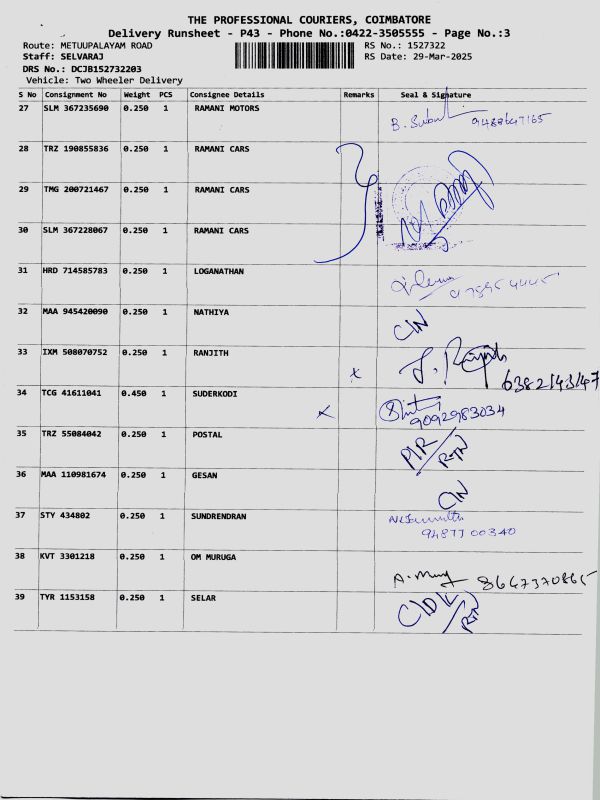 THE PROFESSIONAL COURIERS, COIMBATORE
Delivery Runsheet - P43 - Phone No.:0422-3505555 - Page No.:3
Route: METUUPALAYAM ROAD RS No.: 1527322
Staff: SELVARAJ RS Date: 29-Mar-2025
DRS No.: DCJB152732203
Vehicle: Two Wheeler Delivery
S No Consignment No Weight PCS Consignee Details Remarks Seal & Signature
27 SLM 367235690 0.250 1 RAMANI MOTORS
28 TRZ 190855836 0.250 1 RAMANI CARS
29 TMG 200721467 0.250 1 RAMANI CARS
30 SLM 367228067 0.250 1 RAMANI CARS
31 HRD 714585783 0.250 1 LOGANATHAN
32 MAA 945420090 0.250 1 NATHIYA C/N
33 IXM 508070752 0.250 1 RANJITH x 6382143147
34 TCG 41611041 0.450 1 SUDERKODI x 9092983034
35 TRZ 55084042 0.250 1 POSTAL P/R/RTN
36 MAA 110981674 0.250 1 GESAN C/N
37 STY 434802 0.250 1 SUNDRENDRAN 9487700340
38 KVT 3301218 0.250 1 OM MURUGA 8667370865
39 TYR 1153158 0.250 1 SELAR